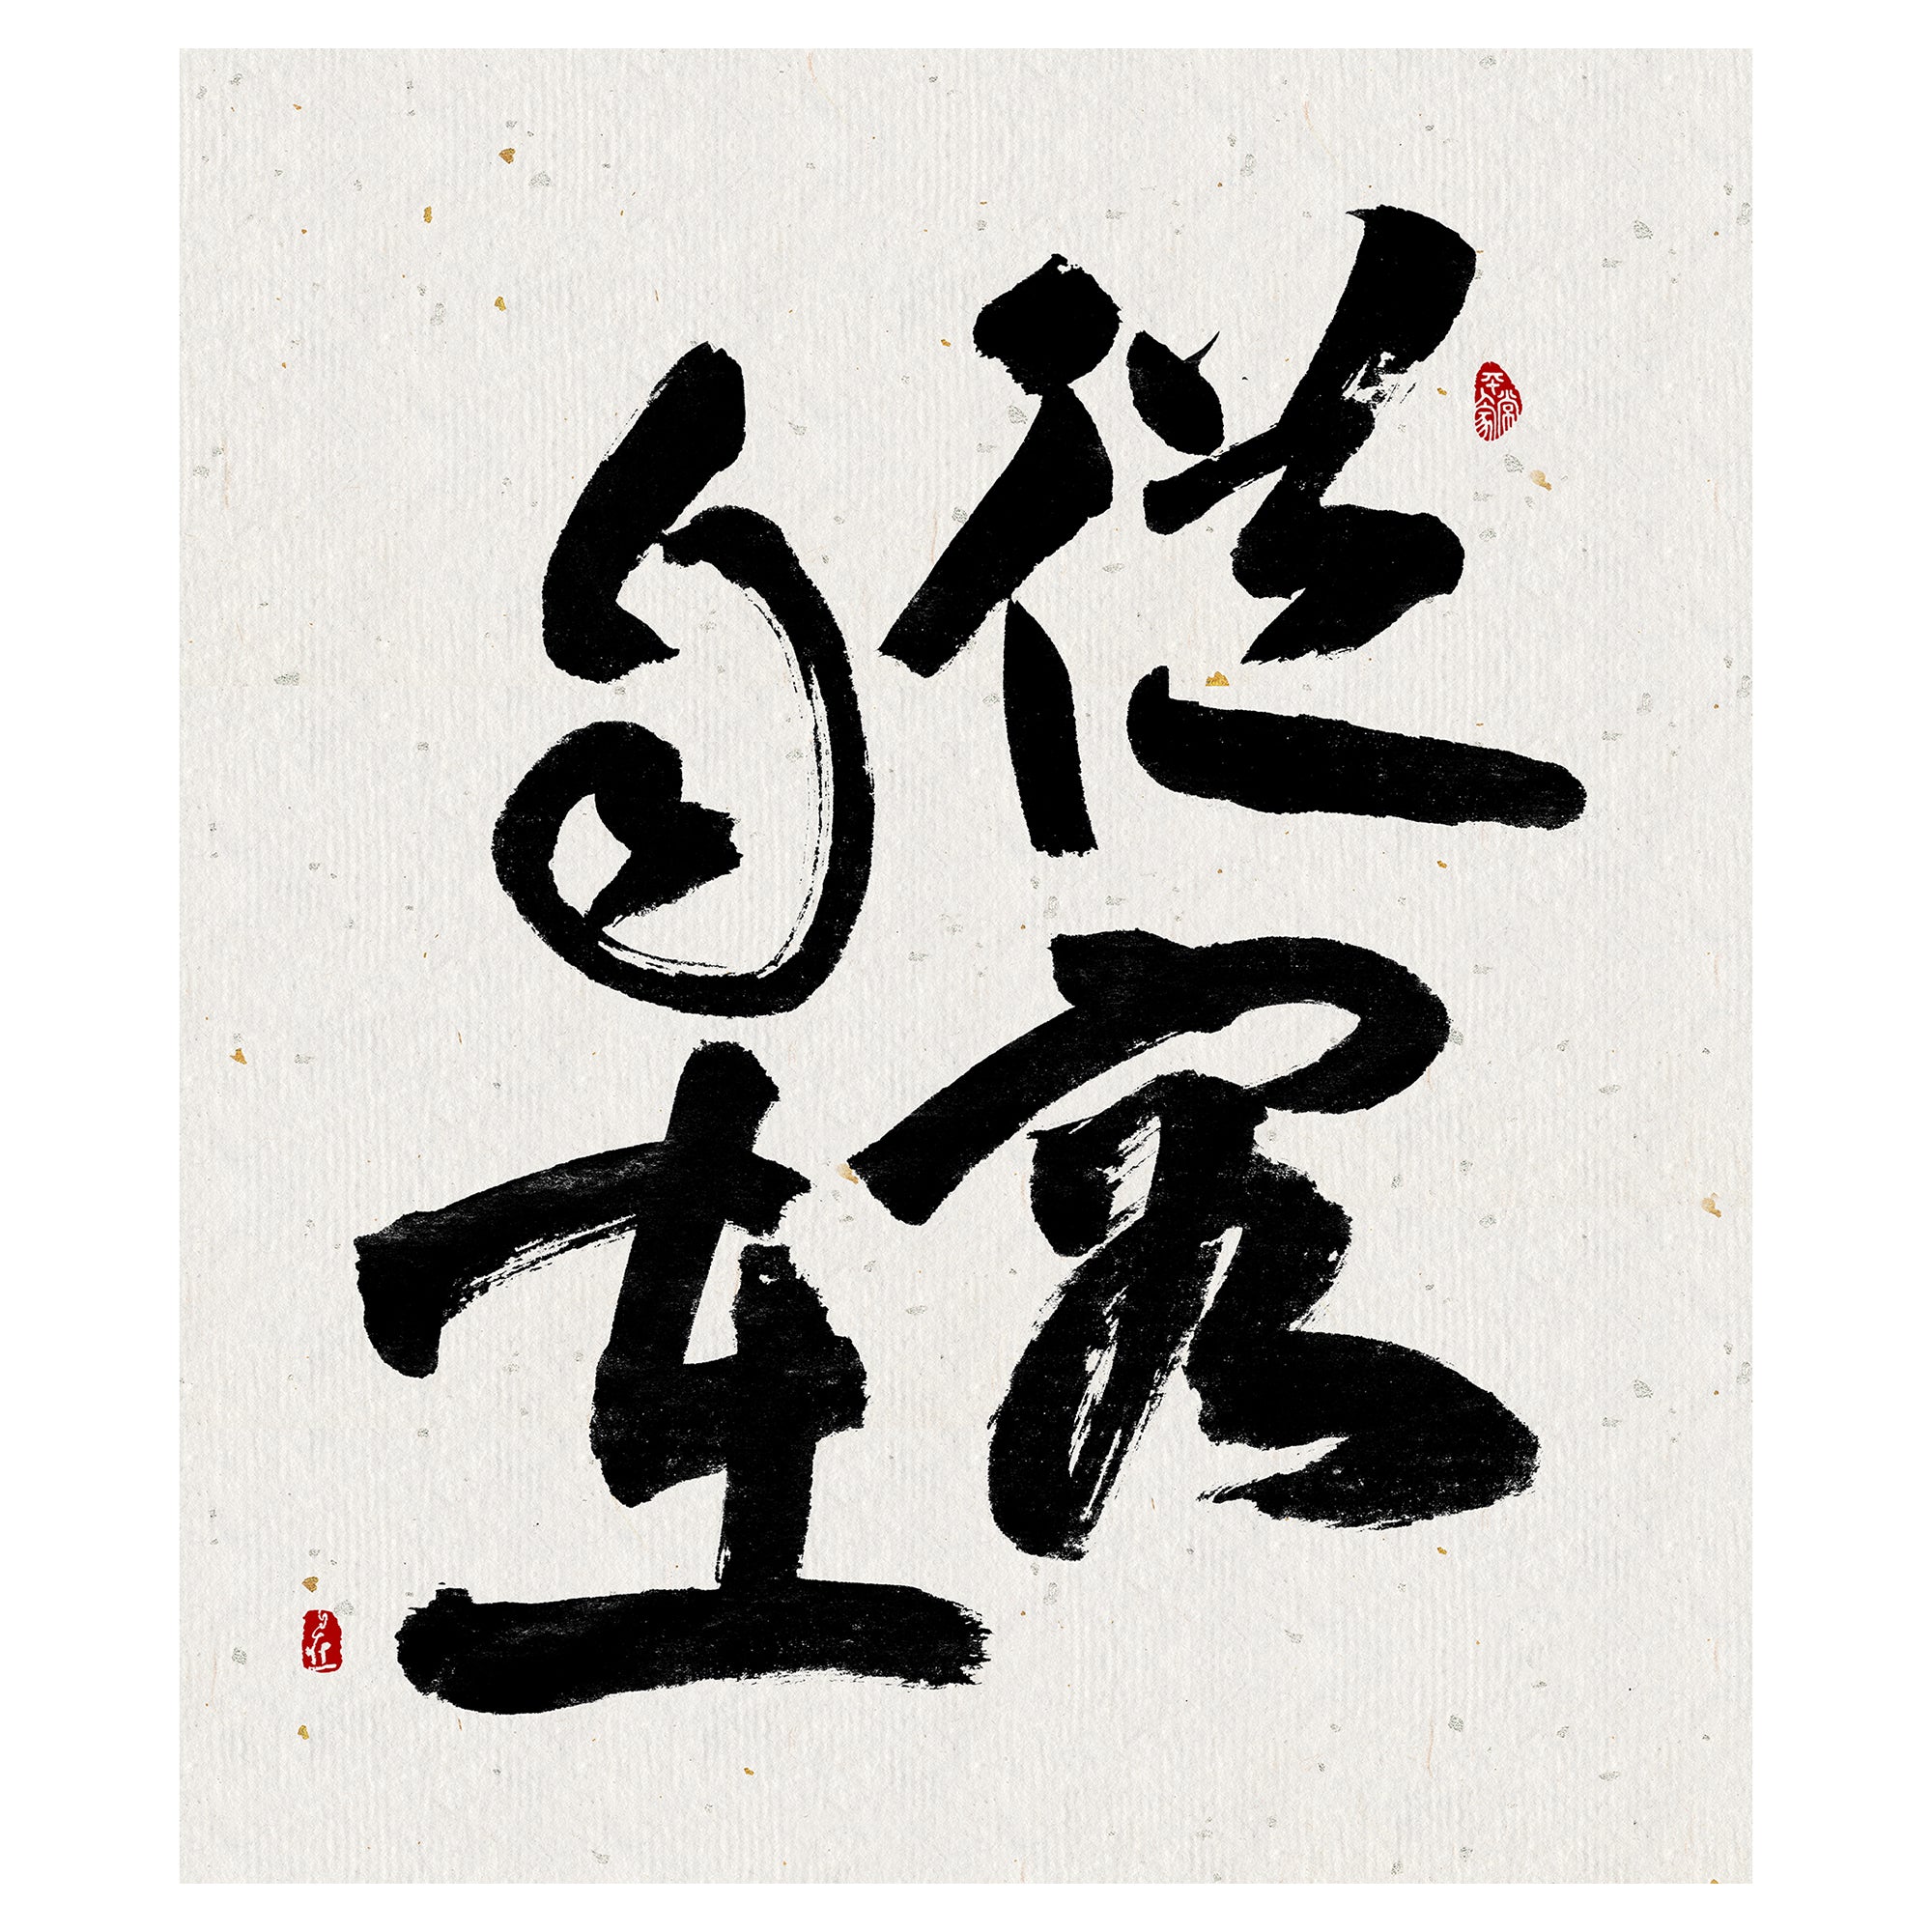 從容
自在